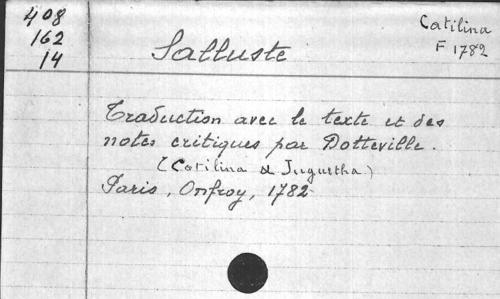 408
162
14
Salluste
Catilina
F 1782
Traduction avec le texte et des
notes critiques par Dotteville.
(Catilina & Jugurtha)
Paris, Onfroy, 1782